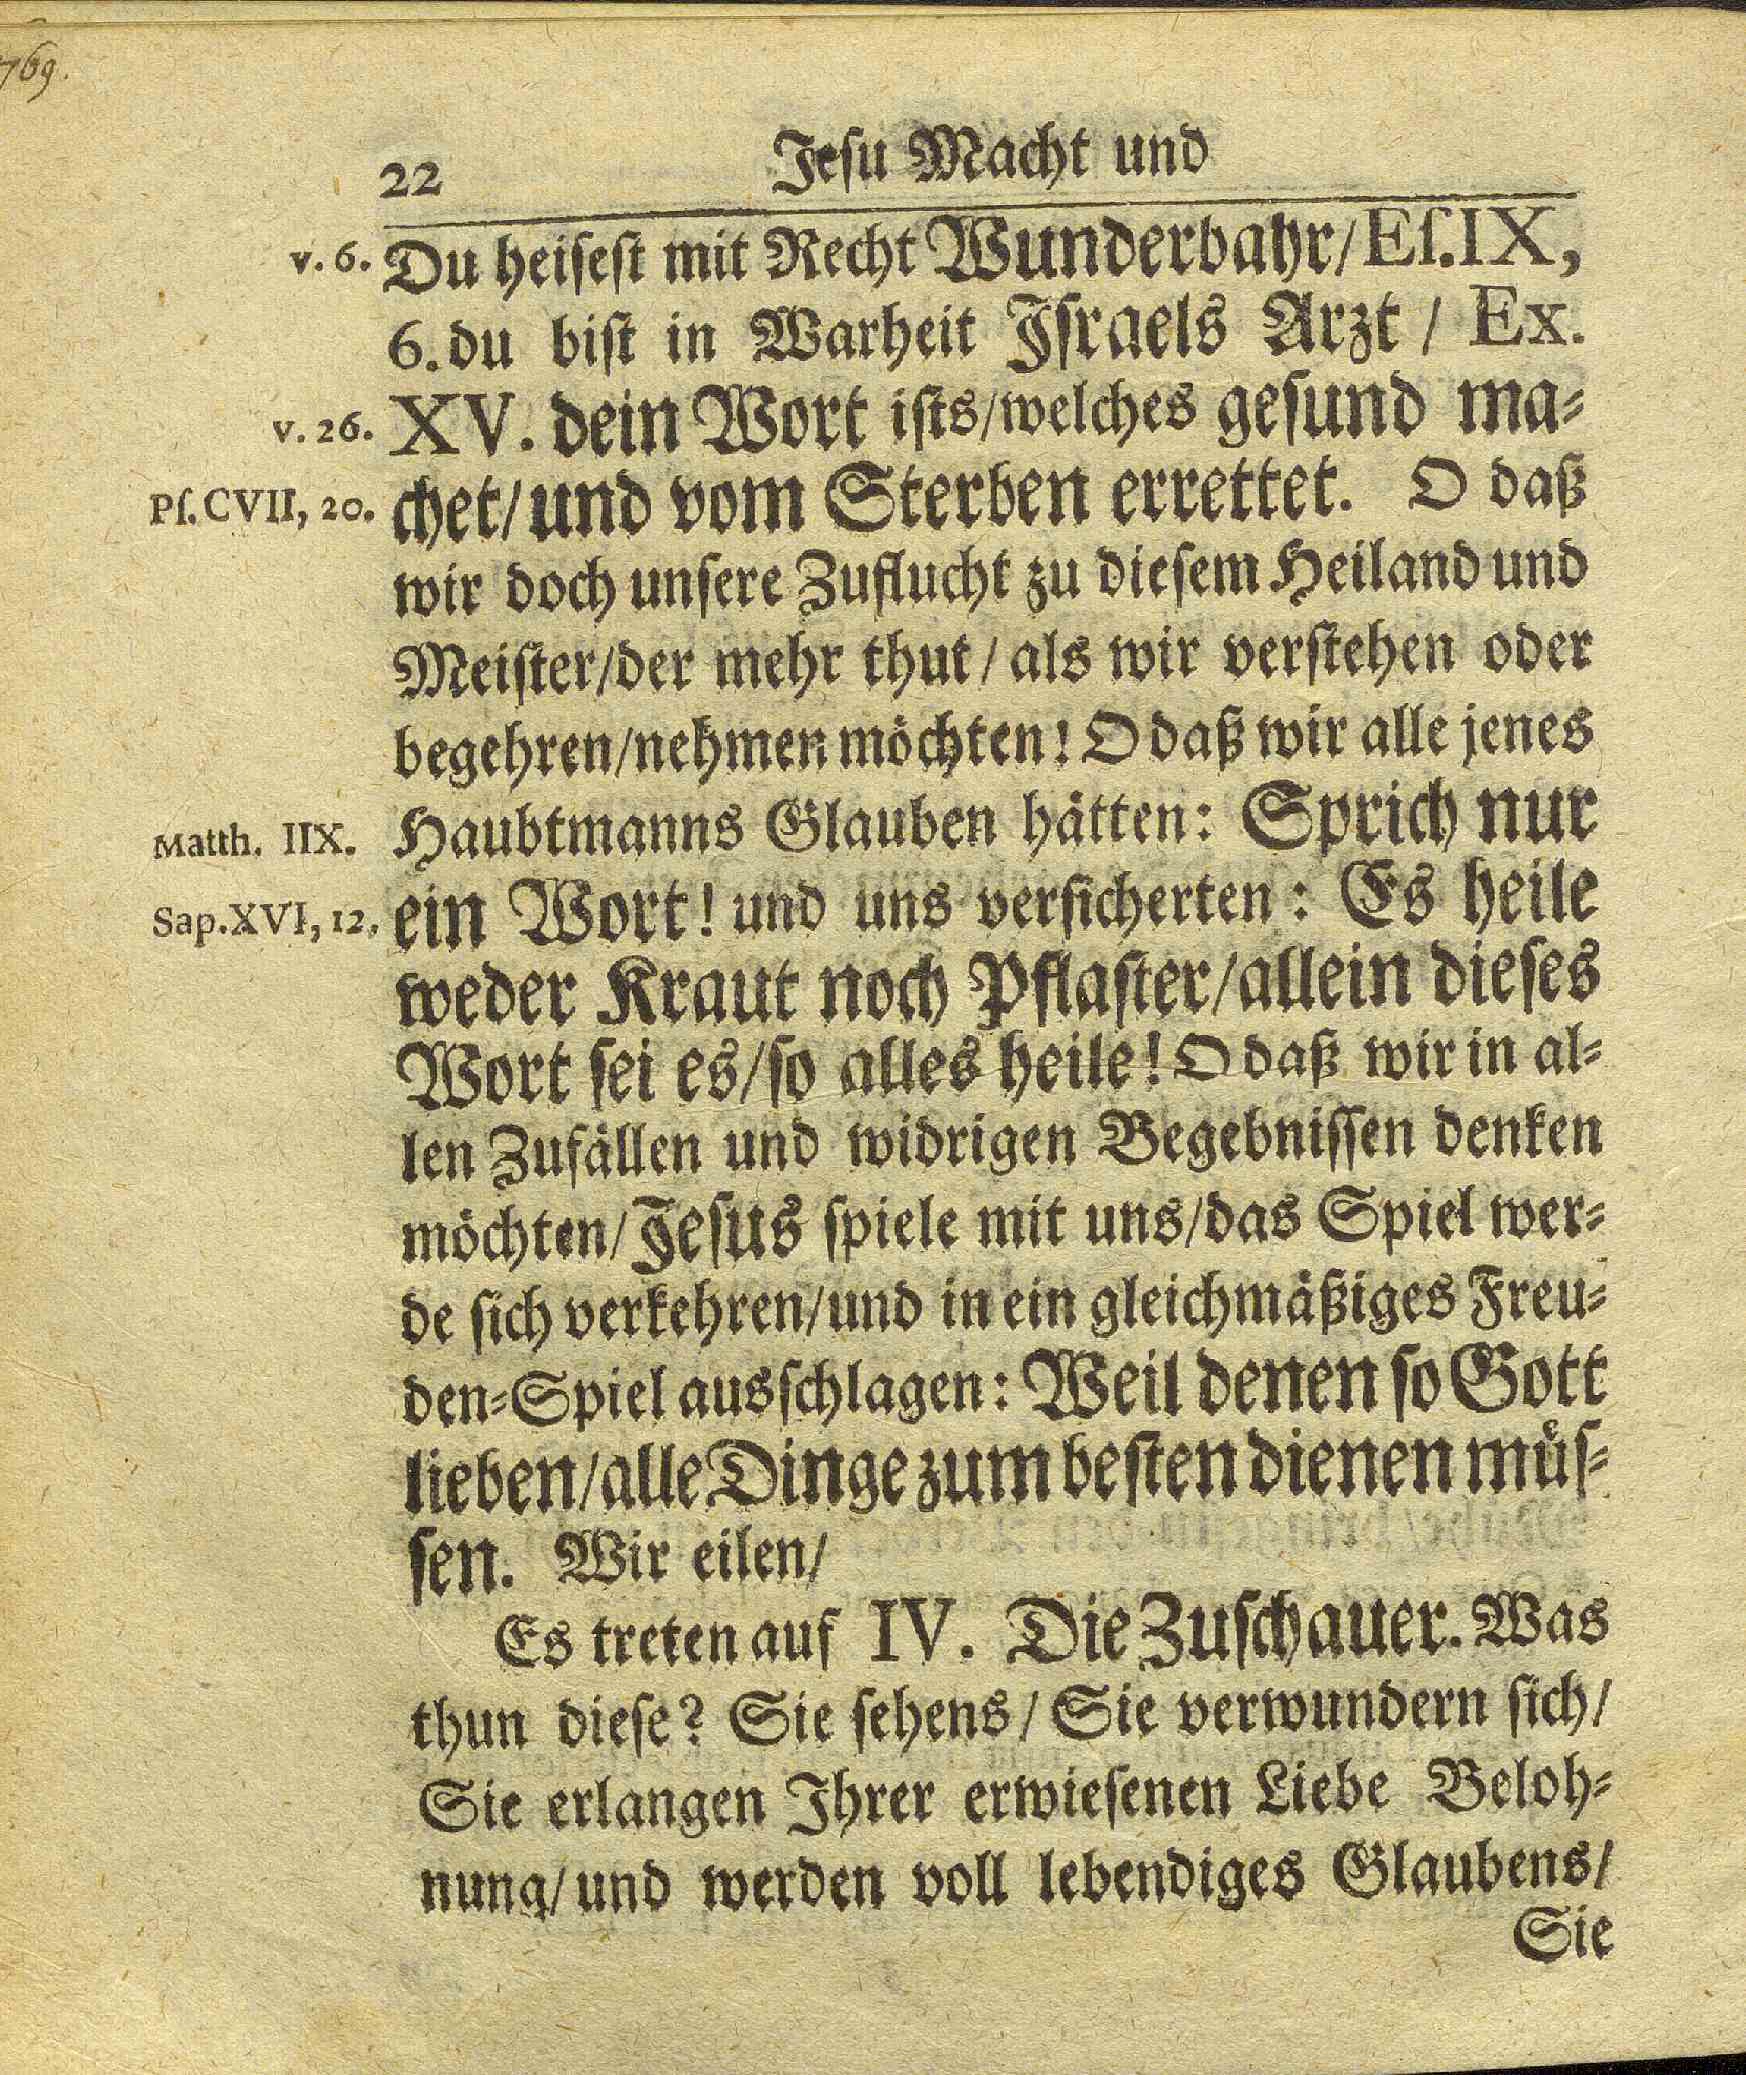 769.
22 Jesu Macht und
v. 6. Du heiſeſt mit Recht Wunderbahr/ Eſ. IX,
6. du biſt in Warheit Iſraels Arzt / Ex.
v. 26. XV. dein Wort iſts/welches geſund ma⸗
Pſ. CVII, 20. chet/ und vom Sterben errettet. O daß
wir doch unſere Zuflucht zu dieſem Heiland und
Meiſter/der mehr thut/ als wir verſtehen oder
begehren/nehmen möchten! O daß wir alle jenes
Matth. IIX. Haubtmanns Glauben hätten: Sprich nur
Sap. XVI, 12. ein Wort! und uns verſicherten: Es heile
weder Kraut noch Pflaſter/allein dieſes
Wort ſei es/ſo alles heile! O daß wir in al⸗
len Zufällen und widrigen Begebniſſen denken
möchten/ Jeſus ſpiele mit uns/das Spiel wer⸗
de ſich verkehren/und in ein gleichmäßiges Freu⸗
den⸗Spiel ausſchlagen: Weil denen ſo Gott
lieben/alle Dinge zum beſten dienen müſ⸗
ſen. Wir eilen/
Es treten auf IV. Die Zuſchauer. Was
thun dieſe? Sie ſehens/ Sie verwundern ſich/
Sie erlangen Ihrer erwieſenen Liebe Beloh⸗
nung/ und werden voll lebendiges Glaubens/
Sie